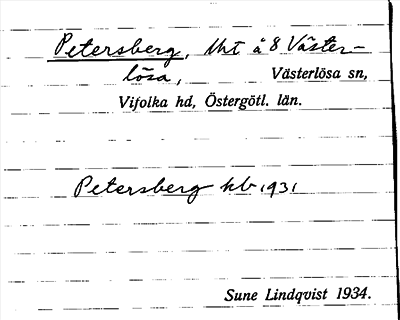 Petersberg, lht å 8 Väster-
lösa, Västerlösa sn,
Vifolka hd, Östergötl. län.
Petersberg hb 1931
Sune Lindqvist 1934.